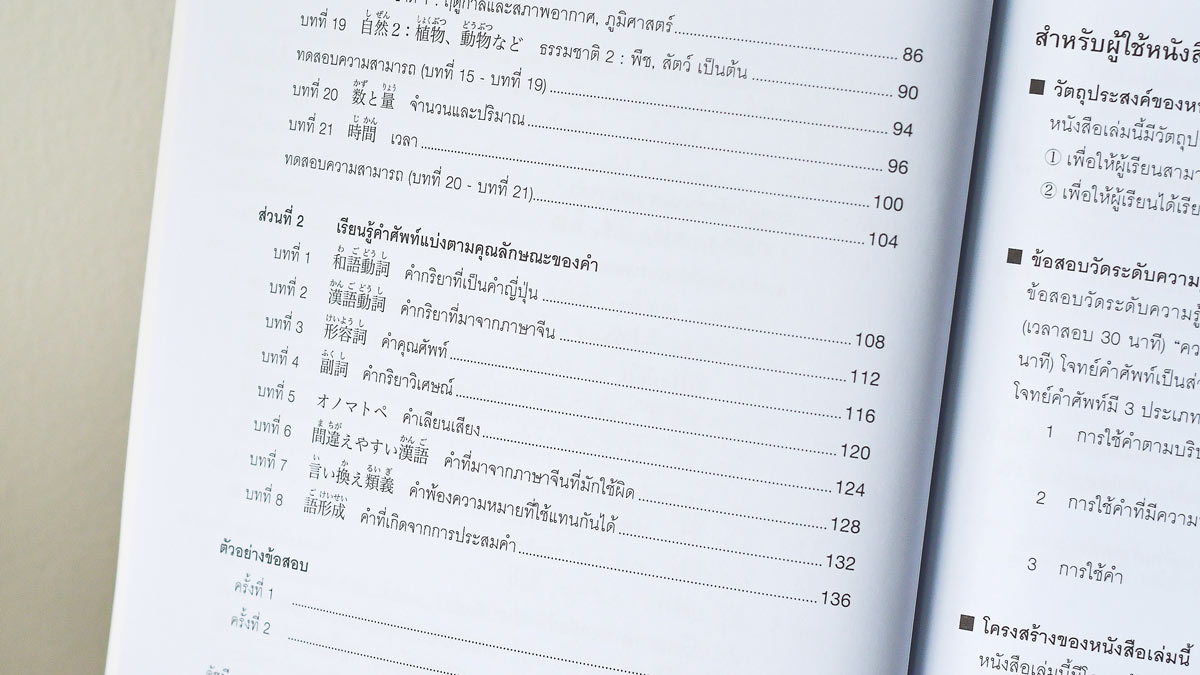 : ฤดูกาลและสภาพอากาศ, ภูมิศาสตร์ 86
บทที่ 19 自然2：植物、動物など ธรรมชาติ 2 : พืช, สัตว์ เป็นต้น 90
ทดสอบความสามารถ (บทที่ 15 - บทที่ 19) 94
บทที่ 20 数と量 จำนวนและปริมาณ 96
บทที่ 21 時間 เวลา 100
ทดสอบความสามารถ (บทที่ 20 - บทที่ 21) 104
ส่วนที่ 2 เรียนรู้คำศัพท์แบ่งตามคุณลักษณะของคำ
บทที่ 1 和語動詞 คำกริยาที่เป็นคำญี่ปุ่น 108
บทที่ 2 漢語動詞 คำกริยาที่มาจากภาษาจีน 112
บทที่ 3 形容詞 คำคุณศัพท์ 116
บทที่ 4 副詞 คำกริยาวิเศษณ์ 120
บทที่ 5 オノマトペ คำเลียนเสียง 124
บทที่ 6 間違えやすい漢語 คำที่มาจากภาษาจีนที่มักใช้ผิด 128
บทที่ 7 言い換え類義 คำพ้องความหมายที่ใช้แทนกันได้ 132
บทที่ 8 語形成 คำที่เกิดจากการประสมคำ 136
ตัวอย่างข้อสอบ
ครั้งที่ 1
ครั้งที่ 2
สำหรับผู้ใช้หนังสื
■ วัตถุประสงค์ของห
หนังสือเล่มนี้มีวัตถุป
① เพื่อให้ผู้เรียนสามา
② เพื่อให้ผู้เรียนได้เรีย
■ ข้อสอบวัดระดับความ
ข้อสอบวัดระดับความรู้
(เวลาสอบ 30 นาที) “คว
นาที) โจทย์คำศัพท์เป็นส่
โจทย์คำศัพท์มี 3 ประเภท
1 การใช้คำตามบริบ
2 การใช้คำที่มีความ
3 การใช้คำ
■ โครงสร้างของหนังสือเล่มนี้
หนังสือเล่มนี้มี